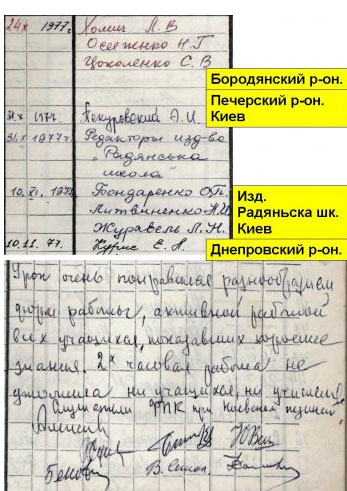 24 X 1977г. Хомич Л. В
Осеженко Н. Г
Цоколенко С. В
Бородянский р-он.
Печерский р-он.
Киев
31.X 1977. Пекуровский Э. И.
31.X 1977г. Редакторы изд-ва
„Радянська
школа"
10. XI. 1977 Бондаренко О. П.
Литвиненко Н. И
Журавель Л. Н.
Изд.
Радяньска шк.
Киев
10.11. 77. Курис Е. А
Днепровский р-он.
Урок очень понравился разнообразием
форм работы, активной работой
всех учащихся, показавших хорошие
знания. 2х часовая работа не
утомила ни учащихся, ни учителей
Слушатели ФПК при Киевском